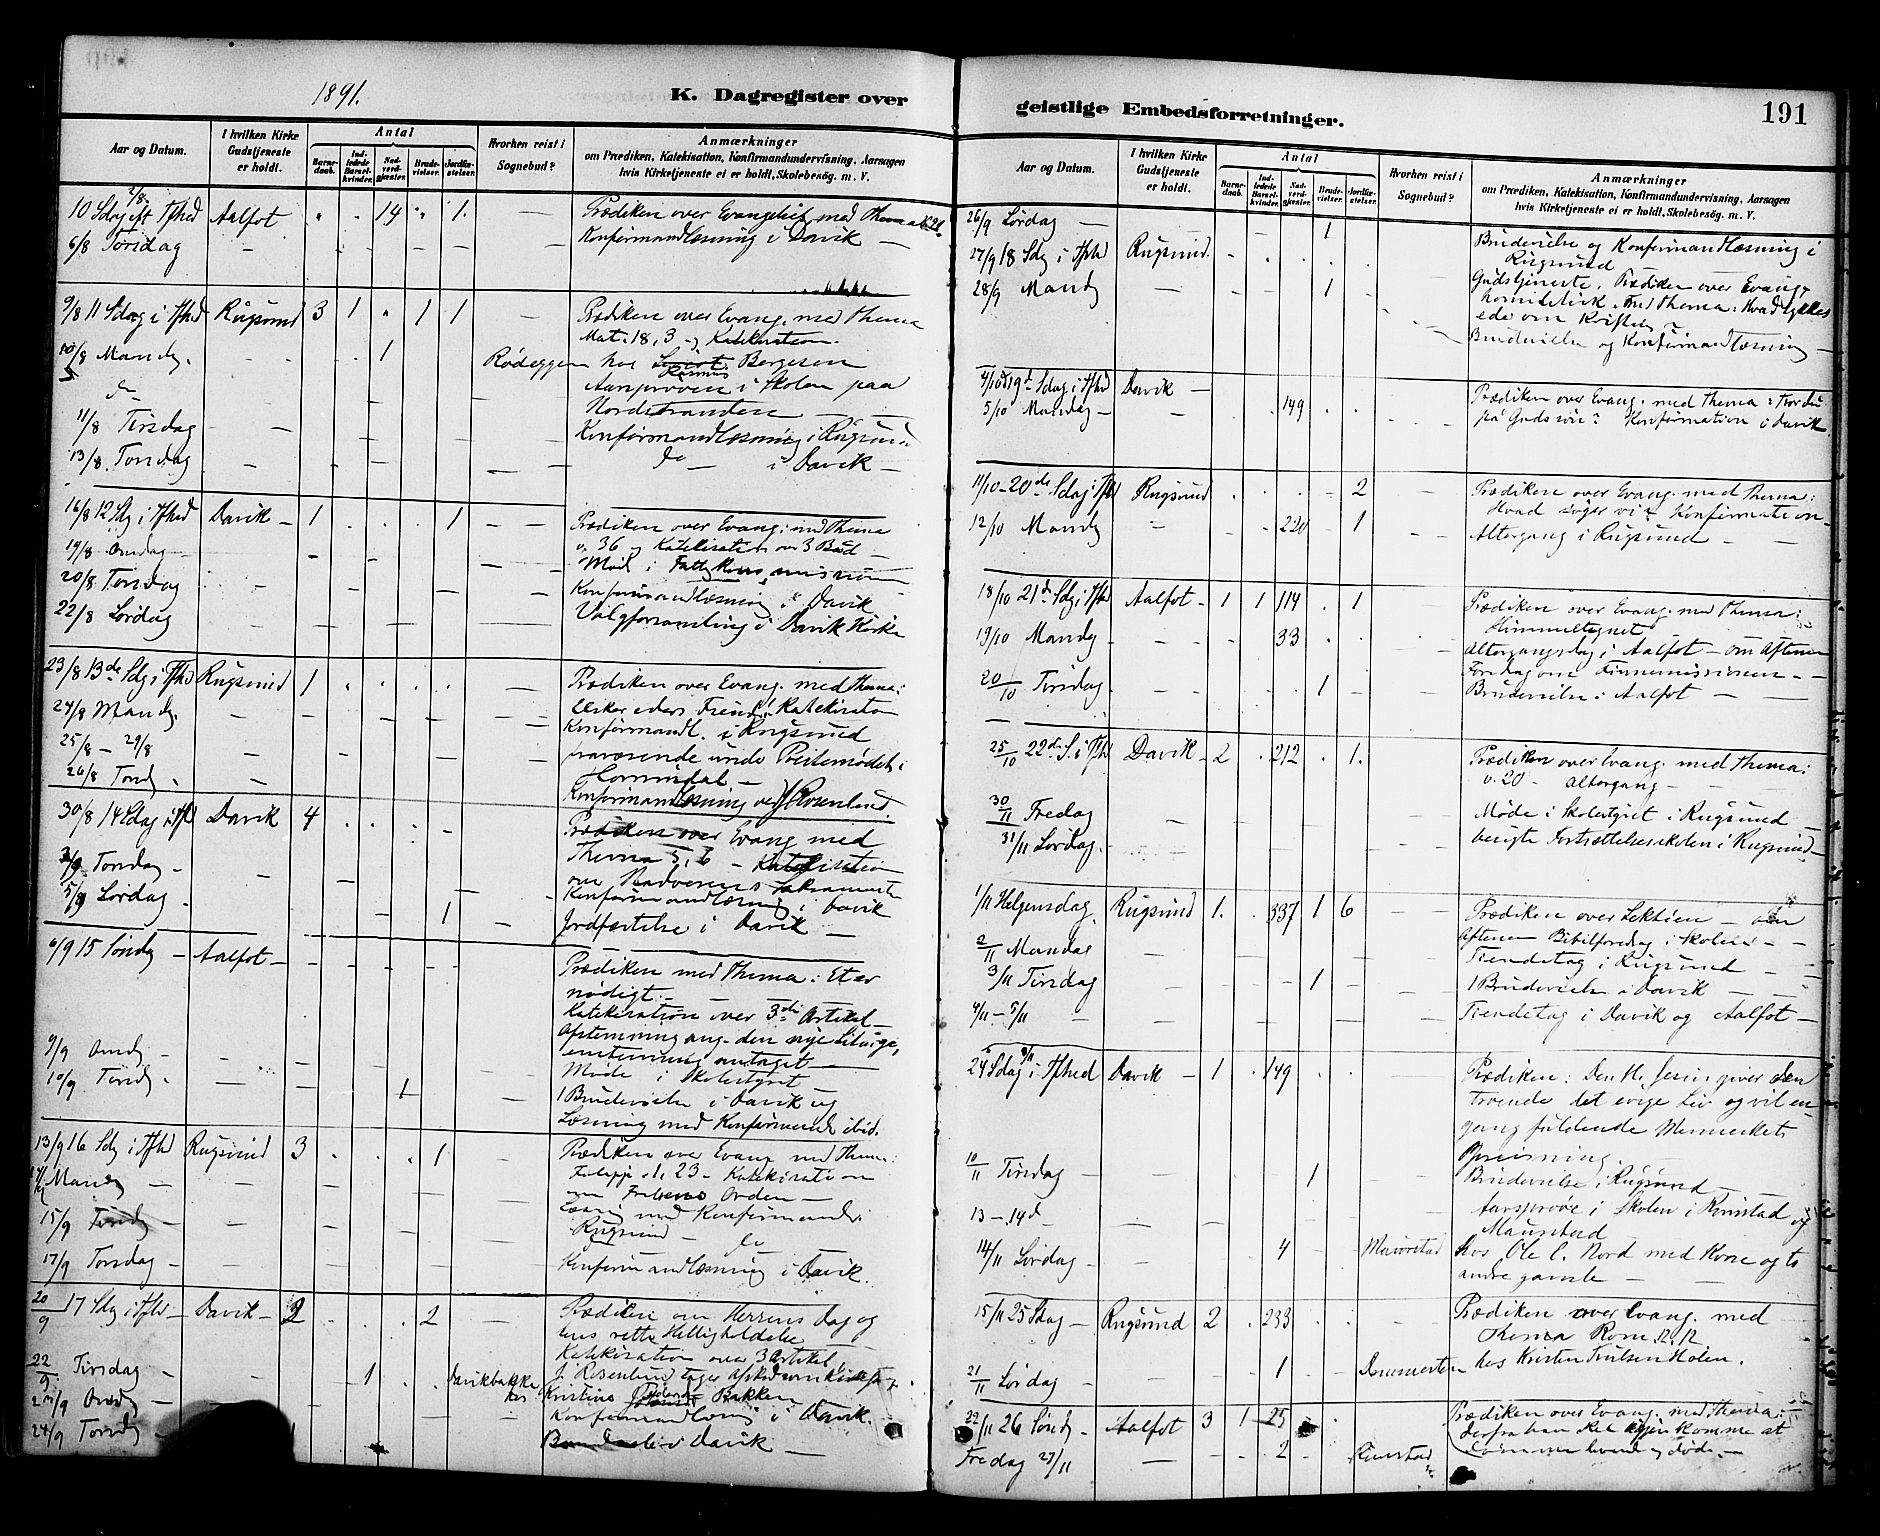 1891.
K. Dagregister over
Aar og Datum.
I hvilken Kirke Gudstjeneste er holdt.
Antal
Barnedaab.
Indledede Barselkvinder.
Nadverdgjester.
Brudevielser.
Jordfæstelser.
Hvorhen reist i Sognebud?
Anmærkninger
om Prædiken, Katekisation, Konfirmandundervisning, Aarsagen
hvis Kirketjeneste ei er holdt, Skolebesøg. m. V.
2/8.
10 Sdag eft Tfhed Aalfot " . 14 " 1. — Prædiken over Evangeliet med Thema
6/8 Torsdag — Konfirmandlæsning i Davik —
9/8 11 Sdag i Tfhed Rugsund 3 1 " 1 1 — Prædiken over Evang. med Thema
Mat. 18, 3 og Katekisation.
10/8 Mandg. 1 Rødeggen hos Rasmus Børgesen
d° Aarsprøven i Skolen paa
Nordstranden —
11/8 Tirsdag Konfirmandlæsning i Rugsund
13/8. Torsdag d° — i Davik —
16/8 12 Sdg i Tfhed Davik — 1 . . . 1 — — Prædiken over Evang. med Thema
v. 36 og Katekisation over 3 Bud —
19/8 Onsdag — Møde i
20/8 Torsdag Konfirmandlæsning i Davik
22/8 Lørdag Valgforsamling i Davik Kirke
23/8 13de Sdg i Tfhd Rugsund 1 . . . . — Prædiken over Evang. med Thema:
Elsker eders Katekisation
24/8 Mandg. Konfirmandl. i Rugsund
25/8 — 29/8 — nærværende under Præstemødet i
Hornindal —
26/8 Torsd . Konfirmandlæsning ved J. Rosenlund.
30/8 14 Sdag i Tfhd Davik 4 . . . . — Prædiken over Evang med
Thema 5, 6 — Katekisation
over Nadverens Sakramente
3/9 Torsdag — Konfirmandlæsning i Davik
5/9 Lørdag 1 Jordfæstelse i Davik —
6/9 15 Søndg — Aalfot — Prædiken med Thema: Et er
nødigt. —
Katekisation over 3die Artikel —
Afstemning ang. den nye Liturgi,
enstemmig antaget —
9/9 Onsdg — Møde i Skolestyret
10/9 Torsdg. 1 1 Brudevielse i Davik og
Læsning med Konfirmander ibid.
13/9 16 Sdg i Tfhd Rugsund 3 . . . 1 — Prædiken over Evang med Thema:
1, 23 — Katekisation
om Orden —
Mandg — Læsning med Konfirmander i
Rugsund —
15/9 Tirsdg — d°
17/9 Torsdag — Konfirmandlæsning i Davik.
20/9 17 Sdg i Tfhd — Davik — 2 . . . 2 — Prædiken om Herrens Dag og
dens rette Helligholdelse
Katekisation over 3 Artikel
22/9. Tirsdag — 1 . . Davikbakke J. Rosenlund tager Afsked
hos Kristine Bakken
Onsdg — Konfirmandlæsning i Davik.
24/9 Torsdg — i Davik —
geistlige Embedsforretninger.
191
Aar og Datum.
I hvilken Kirke Gudstjeneste er holdt.
Antal
Barnedaab.
Indledede Barselkvinder.
Nadverdgjester.
Brudevielser.
Jordfæstelser.
Hvorhen reist i Sognebud?
Anmærkninger
om Prædiken, Katekisation, Konfirmandundervisning, Aarsagen
hvis Kirketjeneste ei er holdt, Skolebesøg. m. V.
26/9 Lørdag — 1 Brudevielse og Konfirmandlæsning i
Rugsund
27/9 18 Sdg i Tfhd Rugsund. Gudstjeneste, Prædiken over Evang.
med Thema: Hvad tykkes
eder om Kristus —
28/9 Mandg — 1 Brudevielse og Konfirmandlæsning —
4/10 19de Sdag i Tfhd Davik — Prædiken over Evang. med Thema: Tror du
5/10 Mandag — 149 på Guds søn? Konfirmation i Davik
11/10 — 20de Sdag i Tfhd Rugsund . . . . 2 Prædiken over Evang. med Thema:
Hvad søger vi? Konfirmation —
12/10 Mandg 220 1 Altergang i Rugsund — —
18/10 21de Sdg i Tfhd Aalfot — 1 1 114 . 1 — Prædiken over Evang. med Thema:
Himmeltegnet
19/10 Mandg 33 Altergangsdag i Aalfot — om Aftenen
Foredag om Finnemissionen —
20/10 Tirsdag. 1 Brudevielse i Aalfot —
25/10 22de S. i Tfhd Davik — 2 . 212 . 1. Prædiken over Evang. med Thema:
v. 20 — Altergang —
30/11 Fredag Møde i Skolestyret i Rugsund —
31/11 Lørdag. besøgte Fortsættelsesskolen i Rugsund —
1/11 Helgensdag, Rugsund 1. . 337 1 6 — — Prædiken over Lektien — om
Aftenen Bibelforedrag i Skolen —
2/11 Mandag Tiendetag i Rugsund —
3/11 Tirsdag 1 1 Brudevielse i Davik —
4/11 — 5/11 — Tiendetag i Davik og Aalfot —
8/11
24 Sdag i Tfhed Davik — 1 . 149 . . Prædiken: Den H. Jesus giver den
troende det evige Liv og vil en-
gang fuldende Menneskets
Opreisning.
10/11 Tirsdag — 1 Brudevielse i Rugsund —
13 — 14d — Aarsprøve i Skolen i Rimstad og
Maurstad
14/11 Lørdag — 4 Maurstad hos Ole E. Nord med Kone og to
andre gamle —
15/11 25 Sdag — Rugsund 2 . 233 Prædiken over Evang. med
Thema Rom. 12. 12
21/11 Lørdag — 1 hos Kristen Holen.
22/11 26 Søndg — Aalfot 3 1 25 Prædiken over Evang. med Thema:
derfra han skal igjen komme at
dømme levende og døde —
Fredag 27/11 — 2 Rimstad